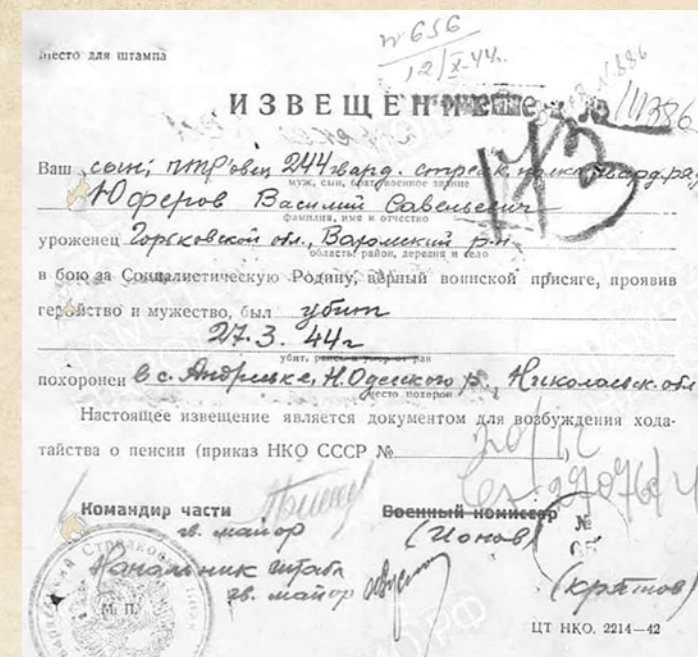 № 656
12/X-44г.
Место для штампа
ИЗВЕЩЕНИЕ № 11386
173
Ваш сын; 244 гвард. стрелк. полка гвард. ряд
муж, сын, брат, военное звание
Юферов Василий Савельевич
фамилия, имя и отчество
уроженец Горьковской обл., р-н
область, район, деревня и село
в бою за Социалистическую Родину, верный воинской присяге, проявив
геройство и мужество, был убит
27.3.44г
убит,
похоронен в с. Андреевке, Н. Одесского р., Николаевск. обл
место похорон
Настоящее извещение является документом для возбуждения хода-
тайства о пенсии (приказ НКО СССР № )
Командир части
Военный комиссар
гв. майор
(Ионов)
Начальник штаба
гв. майор
М. П.
ЦТ НКО. 2214—42